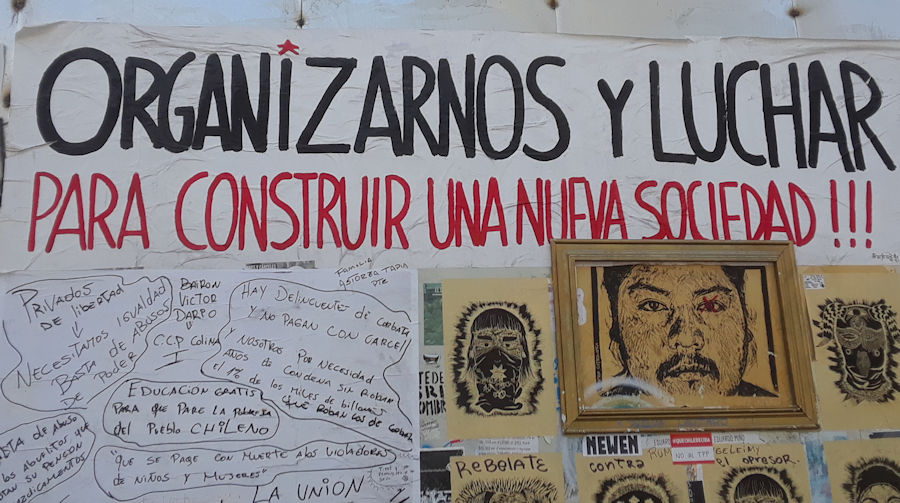 ORGANIZARNOS Y LUCHAR
PARA CONSTRUIR UNA NUEVA SOCIEDAD !!!
Familia
ASTORGA TAPIA
PRIVADOS
DE libertad
NECESITAMOS IGUALDAD
BASTA DE ABUSOS
DE PODER
BAIRON
VICTOR
DARPO
C.C.P COLINA
I
HAY DELINCUENTES DE CORBATA
Y NO PAGAN CON CARCEL!
Y NOSOTROS POR NECESIDAD
AÑOS DE CONDENA SIN ROBAR
EL 1% DE LOS MILES DE billones
QUE ROBAN LOS DE CORBATA
EDUCACION GRATIS
PARA QUE PARE LA
del Pueblo CHILENO
DE Abuso
los Abuelitos que
SU PENSION
MEDICAMENTOS
"QUE SE PAGE CON MUERTE A LOS VIOLADORES
DE NIÑOS Y MUJERES"
LA UNION
NEWEN
contra
EDUARDO MIÑO
#QUECHILEDECIDA
NO AL TPP
el opresor.
REBELATE